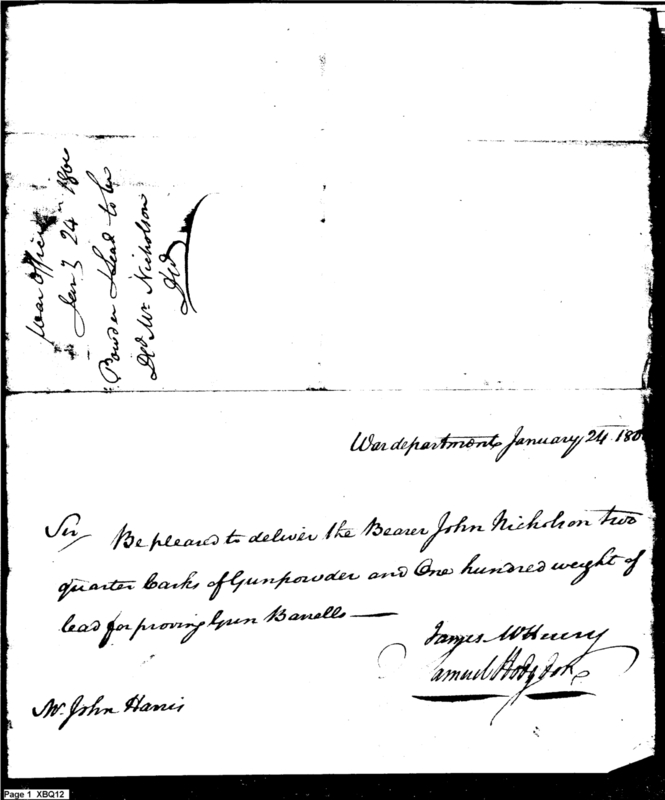 War Office
Jany 24th 1800
Powder & Lead to be
Dd Mr. Nicholson
War department January 24 180
Sir Be pleased to deliver the Bearer John Nicholson two
quarter Casks of Gunpowder and One hundred weight of
lead for proving Gun Barrells —
James McHenry
Samuel Hodgdon
Mr. John Harris
Page 1 XBQ12